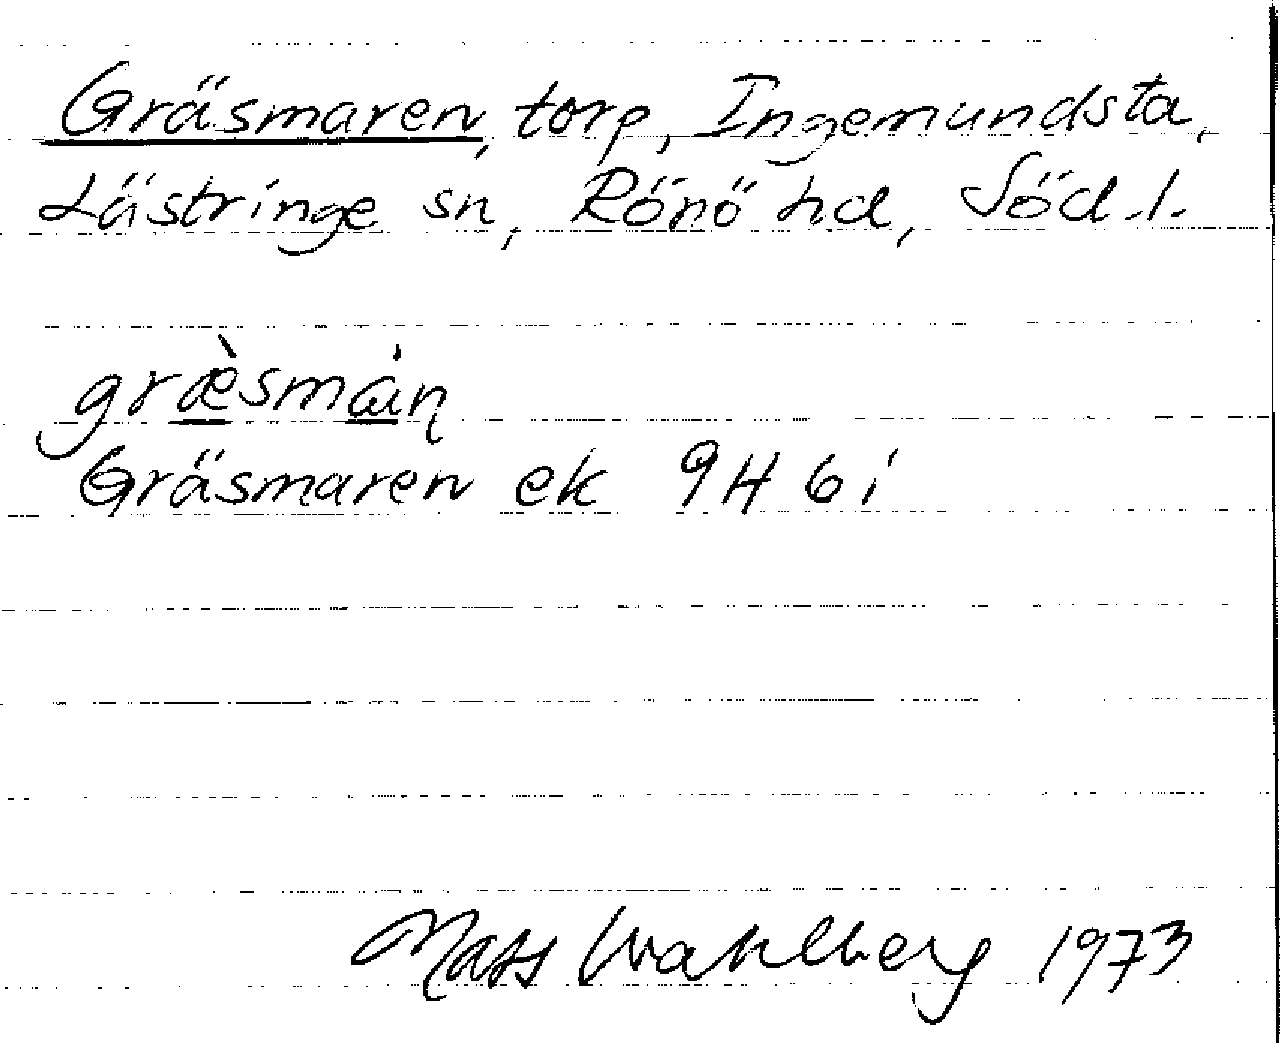 Gräsmaren, torp, Ingemundsta,
Lästringe sn, Rönö hd, Söd.l.
græ̀smàṇ
Gräsmaren ek 9H 6i
Mats Wahlberg 1973